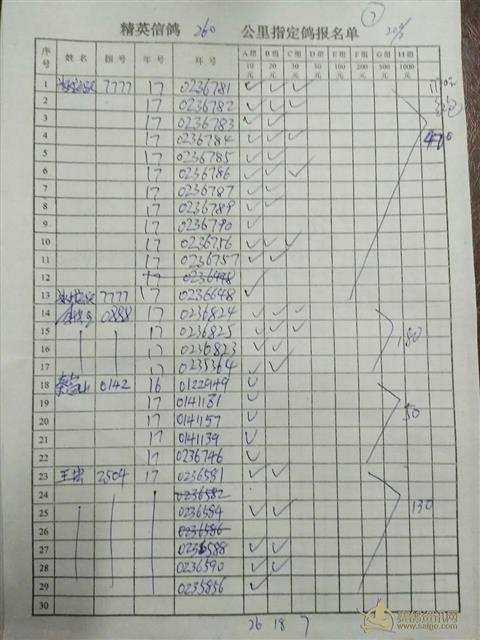 精英信鸽 260 公里指定鸽报名单
序号 姓名 棚号 年号 环号 A组 B组 C组 D组 E组 F组 G组 H组
10元 20元 30元 50元 100元 200元 500元 1000元
1 7777 17 0236781 ✓ ✓ ✓
2 17 0236782 ✓ ✓ ✓
3 17 0236783 ✓ ✓
4 17 0236784 ✓ ✓ ✓
5 17 0236785 ✓ ✓
6 17 0236786 ✓ ✓ ✓
7 17 0236787 ✓ ✓
8 17 0236789 ✓ ✓
9 17 0236790 ✓
10 17 0236756 ✓ ✓ ✓
11 17 0236757 ✓ ✓
12 17
13 7777 17 0236648 ✓
14 0888 17 0236824 ✓ ✓ ✓
15 17 0236825 ✓ ✓ ✓
16 17 0236823 ✓ ✓
17 17 0235364 ✓ ✓
180
18 0142 16 0122949 ✓
19 17 0141181 ✓
20 17 0141157 ✓
21 17 0141139 ✓
22 17 0236746 ✓
50
23 2504 17 0236581 ✓ ✓
24 0236582
25 0236584 ✓ ✓
26 0236586
27 0236588 ✓ ✓
28 0236590 ✓ ✓
29 0235856 ✓
130
30
26 18 7
www.saige.com